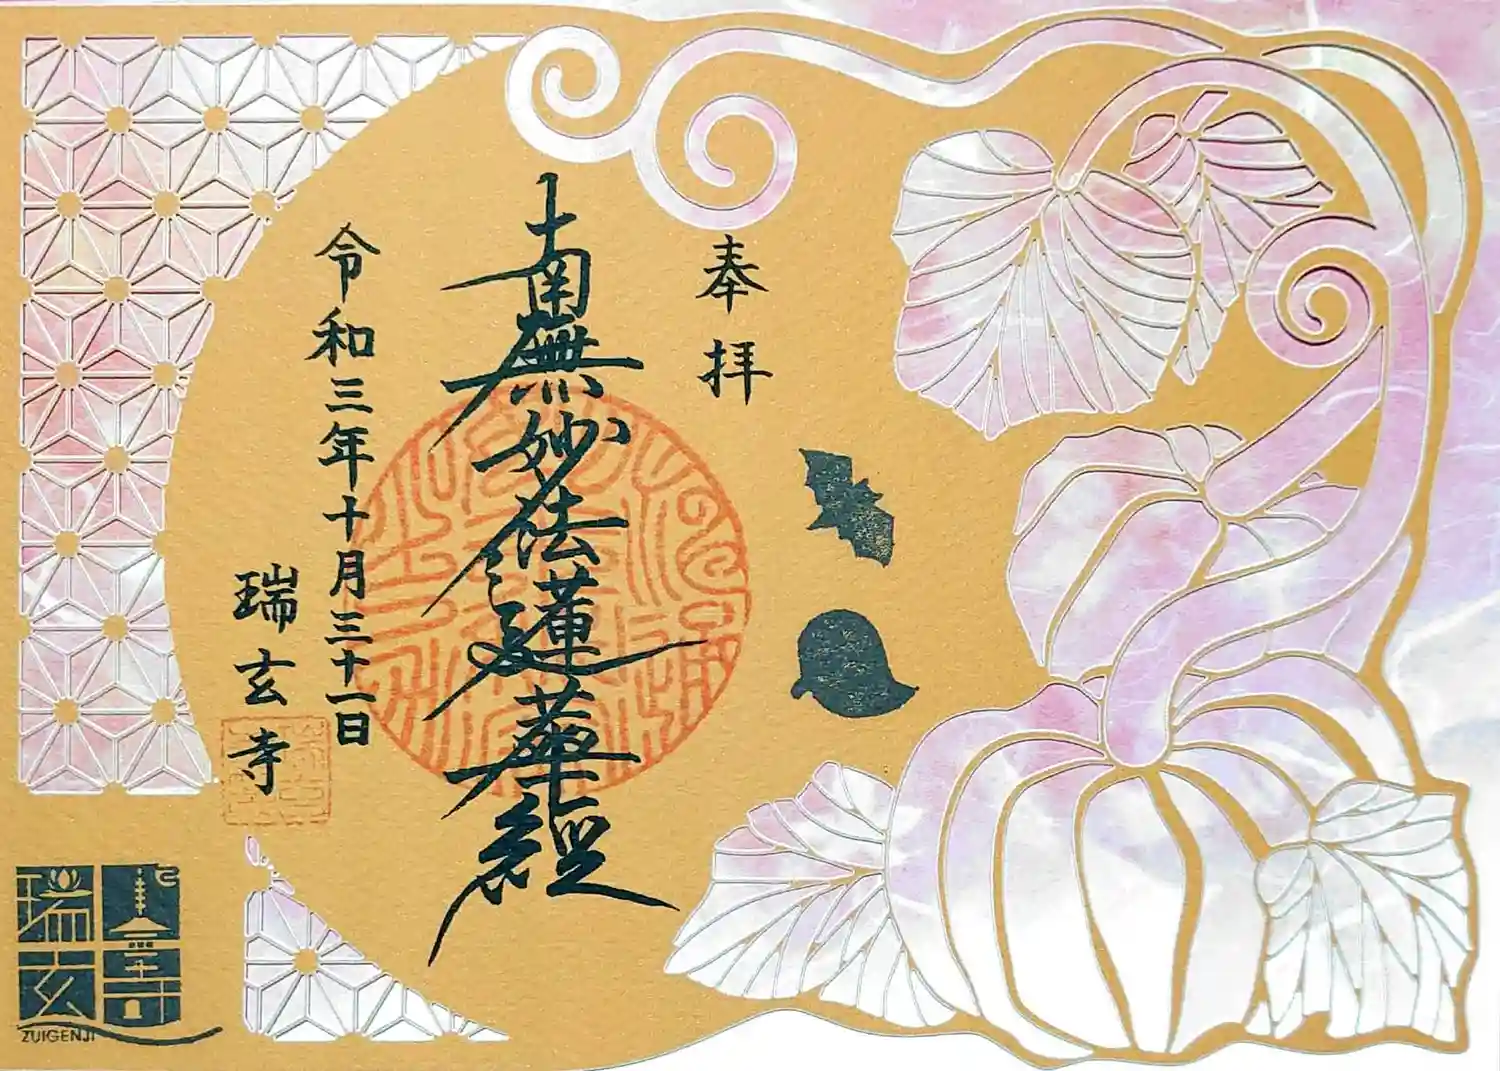 奉拝
南無妙法蓮華經
令和三年十月三十一日
瑞玄寺
瑞玄寺
ZUIGENJI